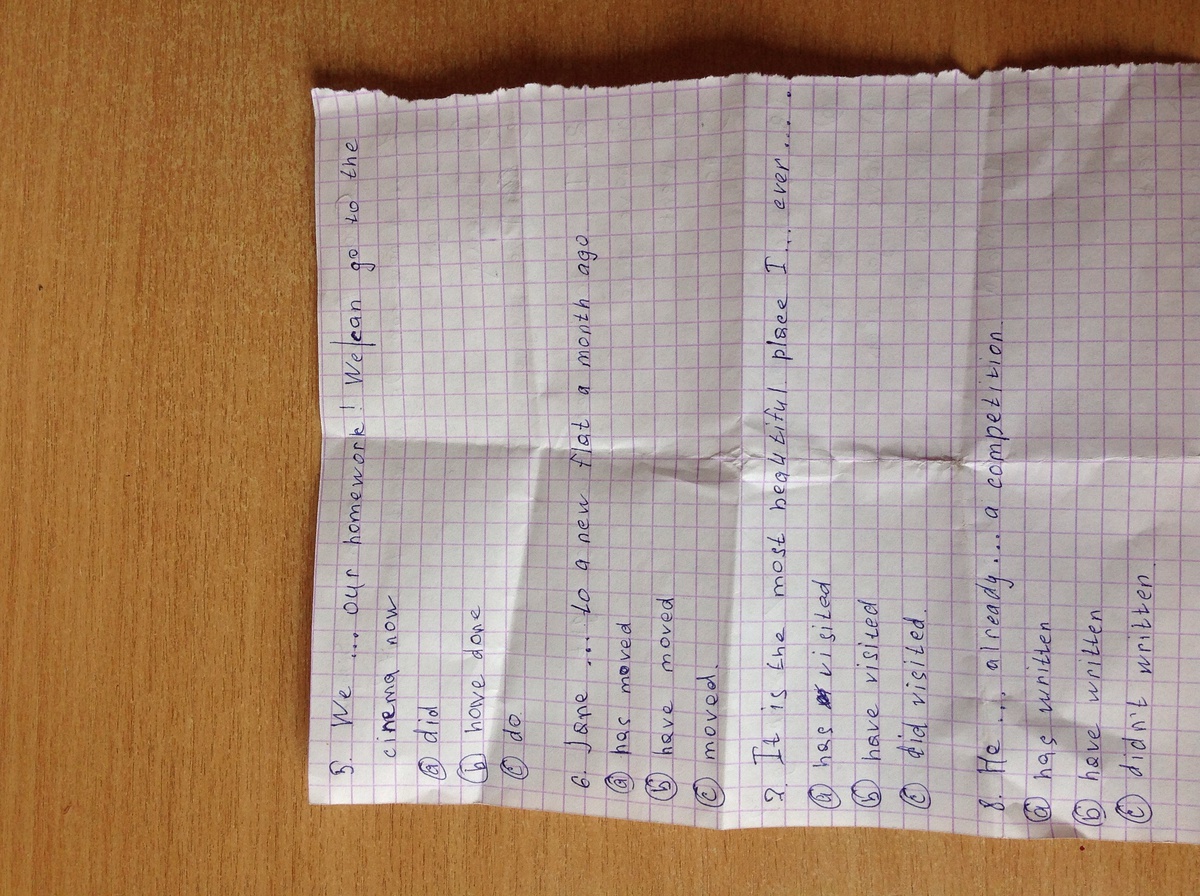 5. We .... our homework! We can go to the
cinema now
a did
b have done
c do
6. Jane .... to a new flat a month ago
a has moved
b have moved
c moved.
7. It is the most beautiful place I... ever....
a has visited
b have visited
c did visited.
8. He ... already... a competition
a has written
b have written
c didn't written.